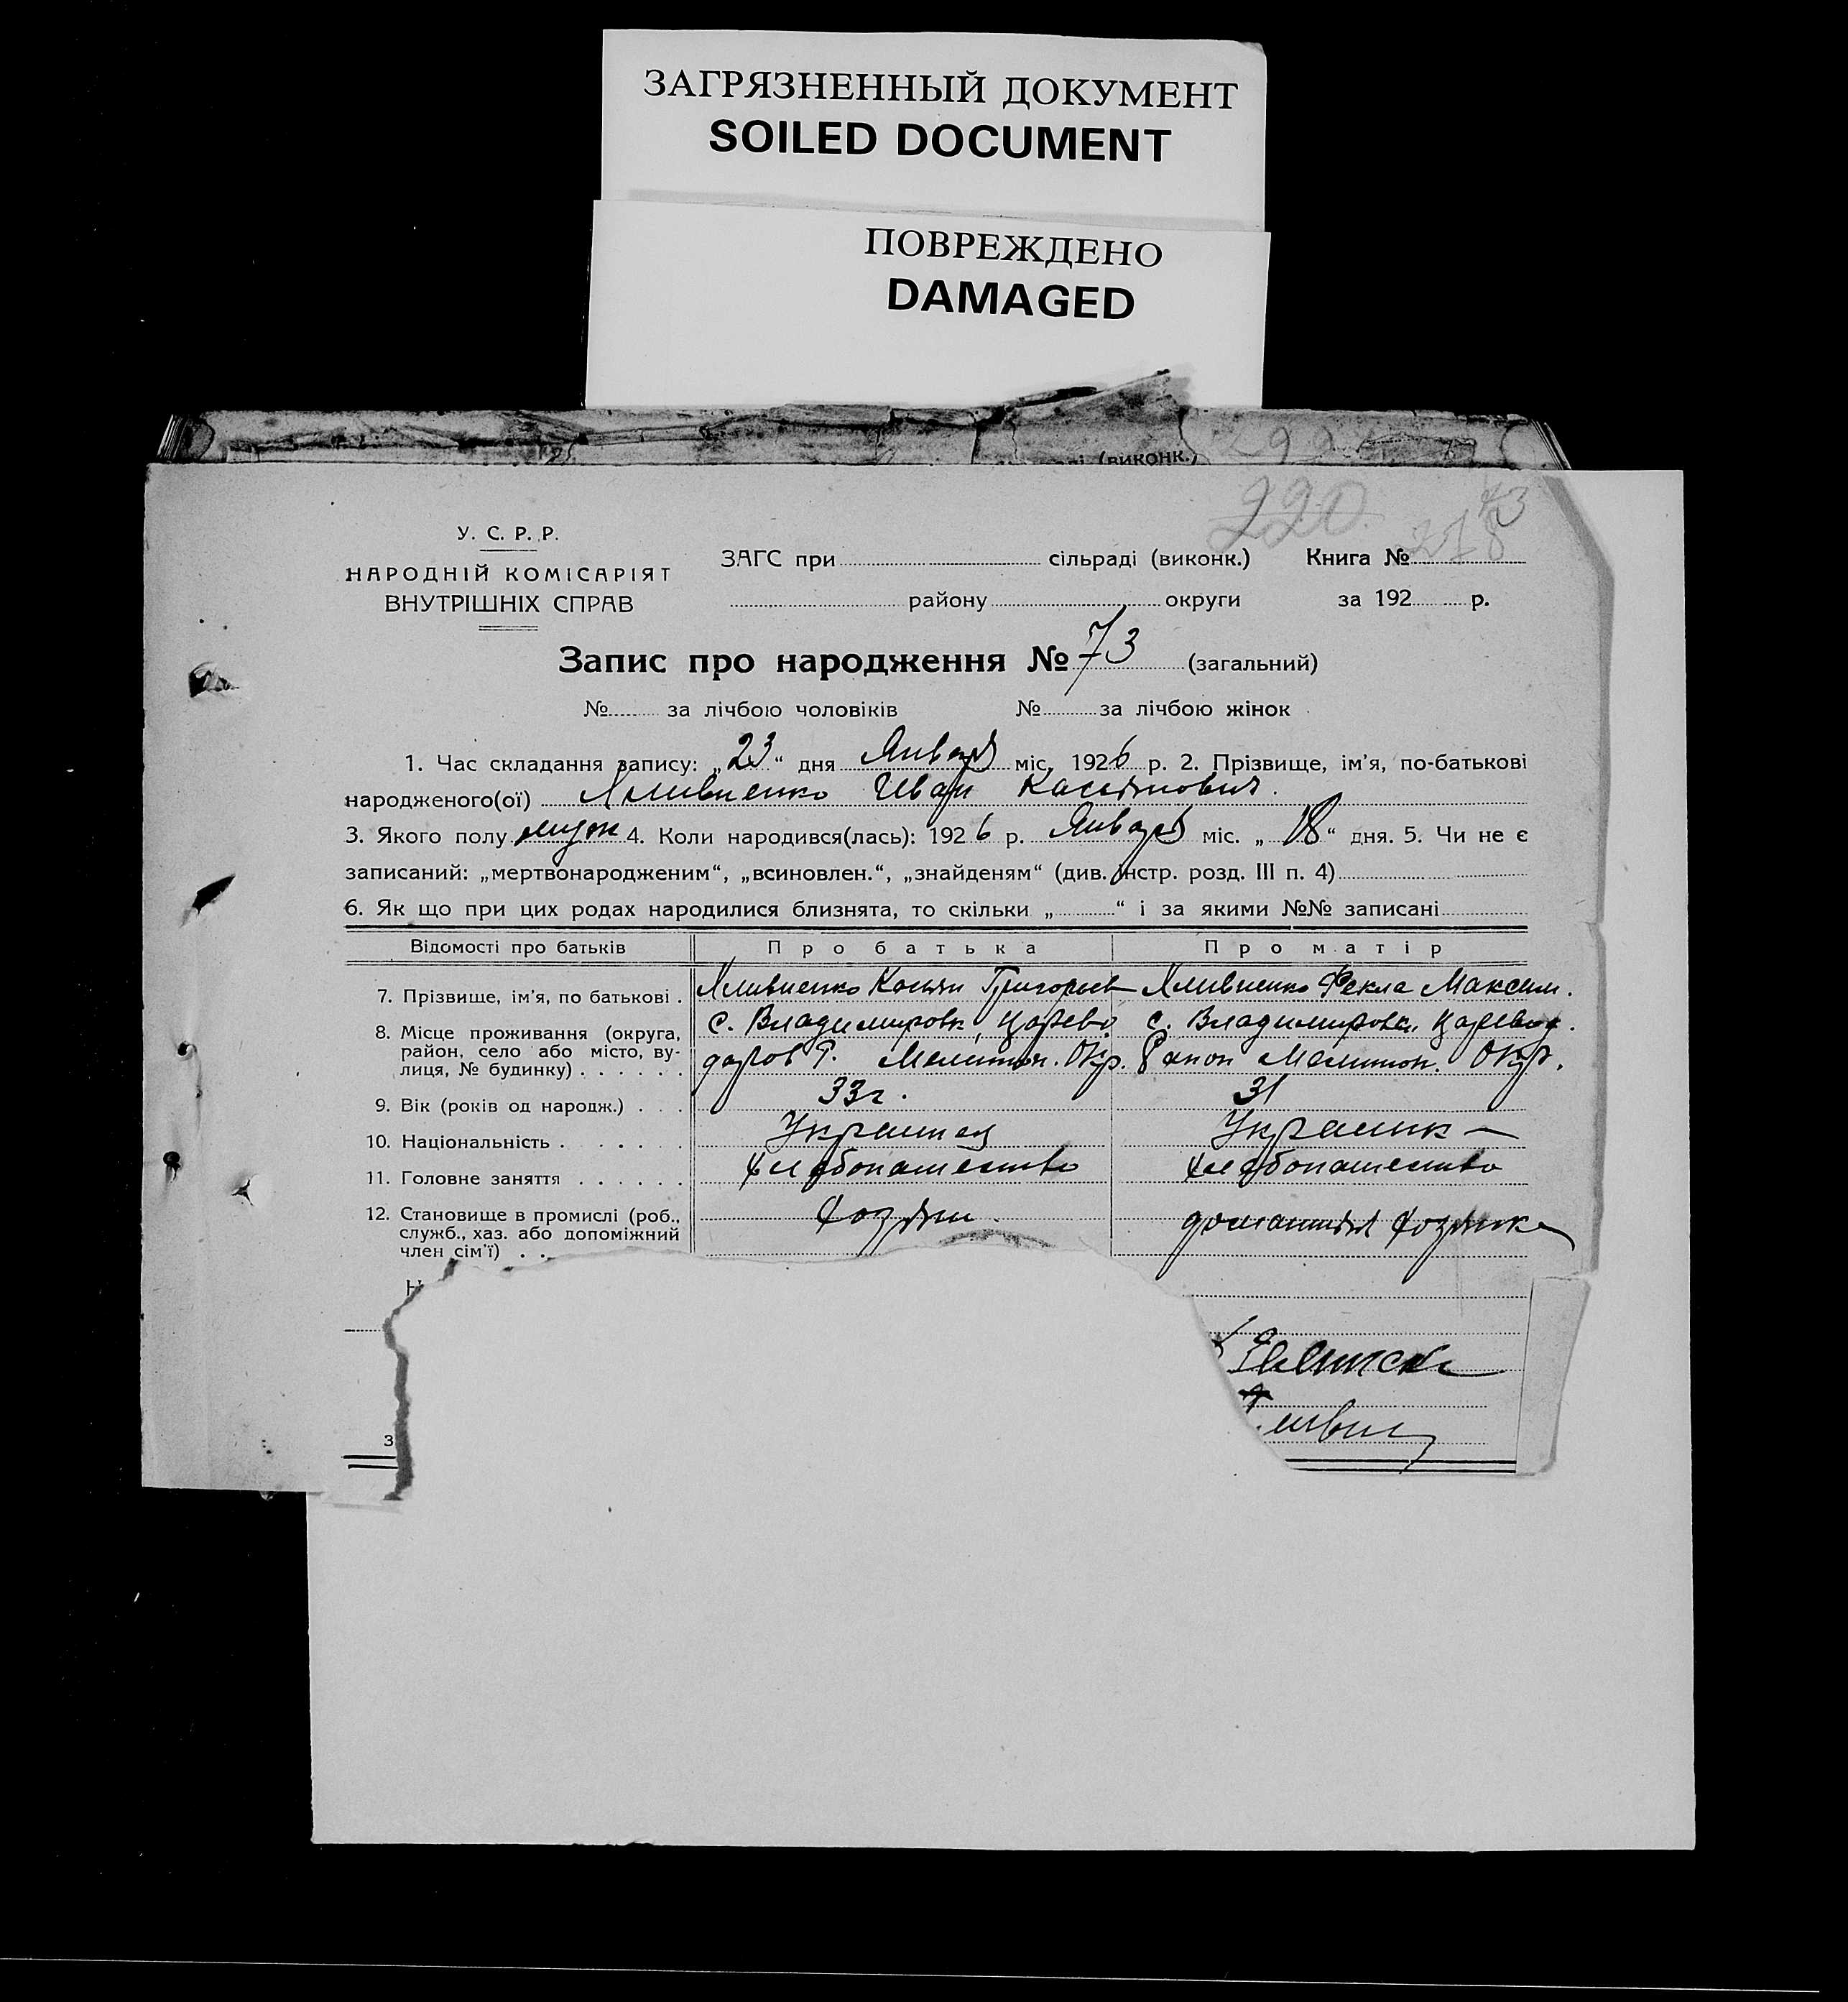 ЗАГРЯЗНЕННЫЙ ДОКУМЕНТ
SOILED DOCUMENT
ПОВРЕЖДЕНО
DAMAGED
(виконк.)
220
73
278
У. С. Р. Р.
НАРОДНІЙ КОМІСАРІЯТ
ВНУТРІШНІХ СПРАВ
ЗАГС при сільраді (виконк.) Книга №
району округи за 192 р.
Запис про народження № 73 (загальний)
№ за лічбою чоловіків № за лічбою жінок
1. Час складання запису: „23“ дня Января міс. 1926 р. 2. Прізвище, ім'я, по-батькові
народженого(ої) Иван Касьянович.
3. Якого полу муж 4. Коли народився(лась): 1926 р. Января міс. „18“ дня. 5. Чи не є
записаний: „мертвонародженим“, „всиновлен.“, „знайденям“ (див. інстр. розд. III п. 4)
6. Як що при цих родах народилися близнята, то скільки „ “ і за якими №№ записані
Відомості про батьків Про батька Про матір
7. Прізвище, ім'я, по батькові . Касьян Григорьев Фекла Максим.
8. Місце проживання (округа, с. Владимировк, Царево с. Владимировка, Царевод.
район, село або місто, ву- даров Р. Мелитоп. Окр. Район Мелитоп. Окр.
лиця, № будинку) . . . . . .
9. Вік (років од народж.) . . . 33 г. 31
10. Національність . . . . . . Украинец Украинк
11. Головне заняття . . . . . . хлебопашество хлебопашество
12. Становище в промислі (роб., хозяин домашняя хозяйка
служб., хаз. або допоміжний
член сім'ї) . . .